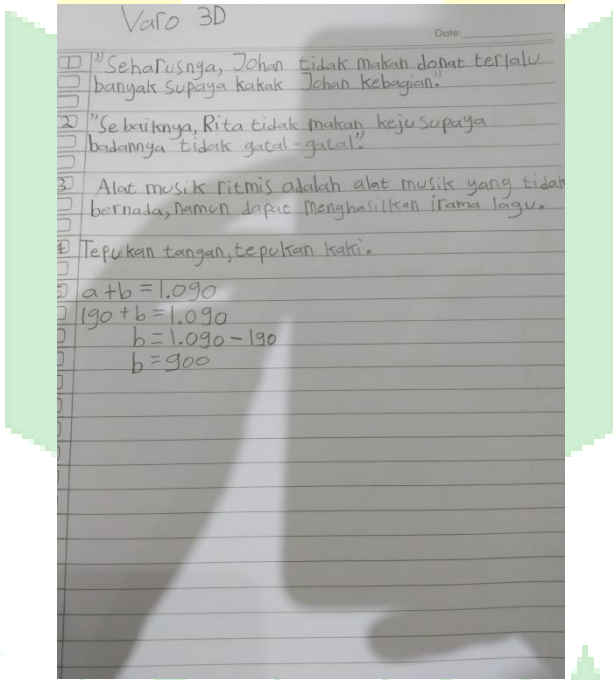 Varo 3D
Date:
1 "Seharusnya, Johan tidak makan donat terlalu
banyak supaya kakak Johan kebagian."
2 "Sebaiknya, Rita tidak makan keju supaya
badannya tidak gatal-gatal".
3 Alat musik ritmis adalah alat musik yang tidak
bernada, namun dapat menghasilkan irama lagu.
4 Tepukan tangan, tepukan kaki.
5 a+b=1.090
190+b=1.090
b=1.090-190
b=900